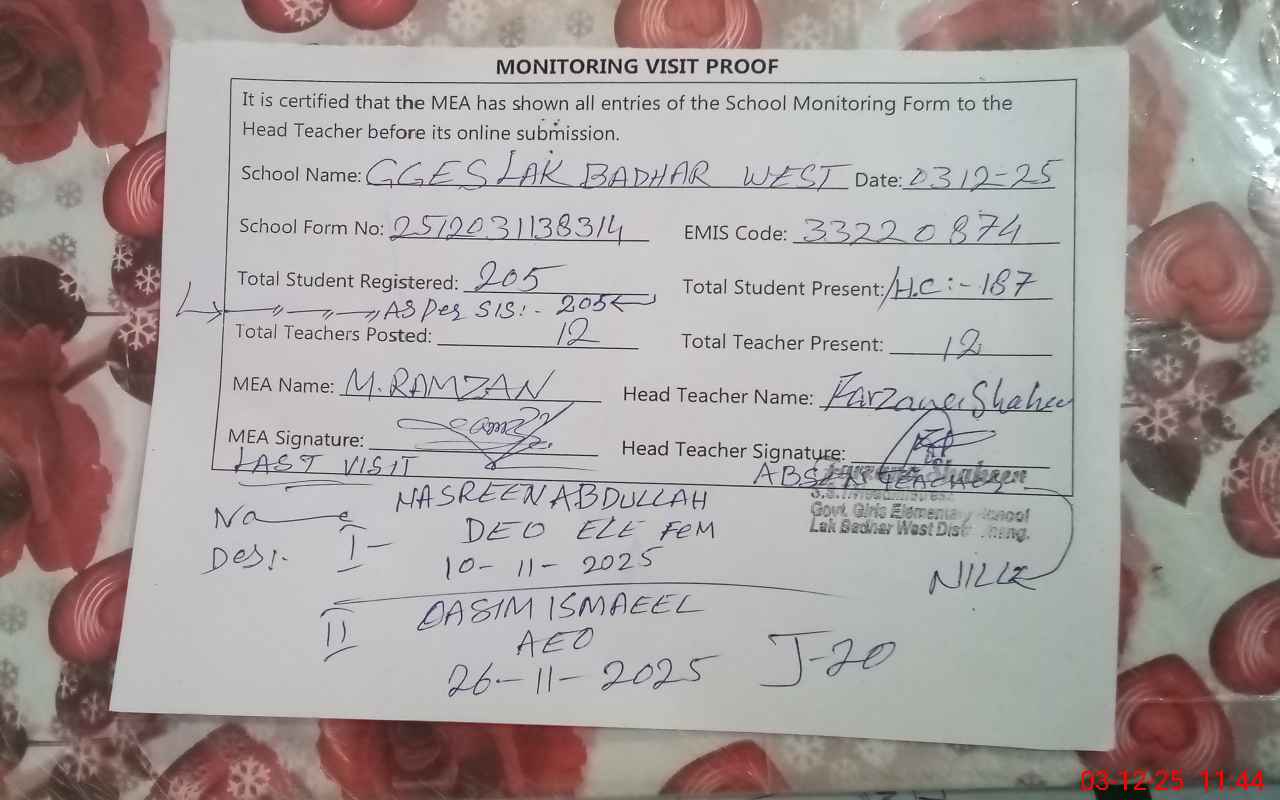 MONITORING VISIT PROOF
It is certified that the MEA has shown all entries of the School Monitoring Form to the
Head Teacher before its online submission.
School Name: GGES LAK BADHAR WEST Date: 03 12-25
School Form No: 2512031138314 EMIS Code: 33220874
Total Student Registered: 205 Total Student Present: /H.C:- 187
AS Per SIS:- 205
Total Teachers Posted: 12 Total Teacher Present: 12
MEA Name: M. RAMZAN Head Teacher Name: Farzana Shaheen
MEA Signature: Head Teacher Signature:
LAST VISIT ABSENT TEACHER
Shaheen
NASREEN ABDULLAH
Govt. Girls Elementary School
Lak Badhar West Distt Jhang.
Desi. I- DEO ELE FEM
10-11-2025
NILL
II OASIM ISMAEEL
AEO
26-11-2025 J-20
03-12-25 11:44